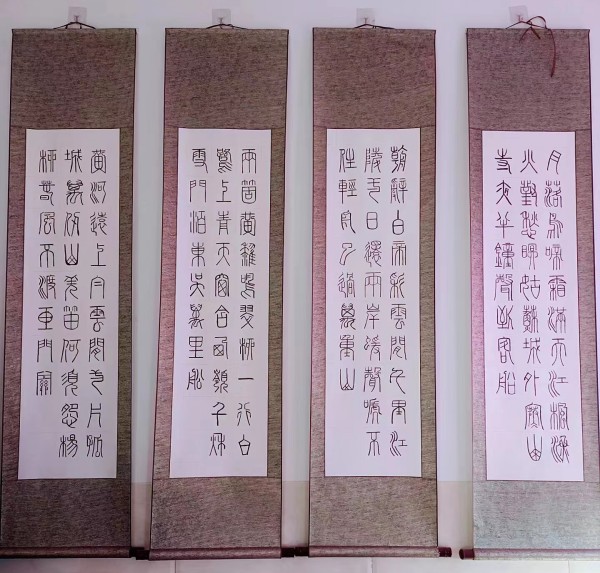 月落烏啼霜滿天江楓漁
火對愁眠姑蘇城外寒山
寺夜半鐘聲到客船
朝辭白帝彩雲間千里江
陵一日還兩岸猿聲啼不
住輕舟已過萬重山
兩箇黃鸝鳴翠柳一行白
鷺上青天窗含西嶺千秋
雪門泊東吳萬里船
黃河遠上白雲間一片孤
城萬仞山羌笛何須怨楊
柳春風不渡玉門關